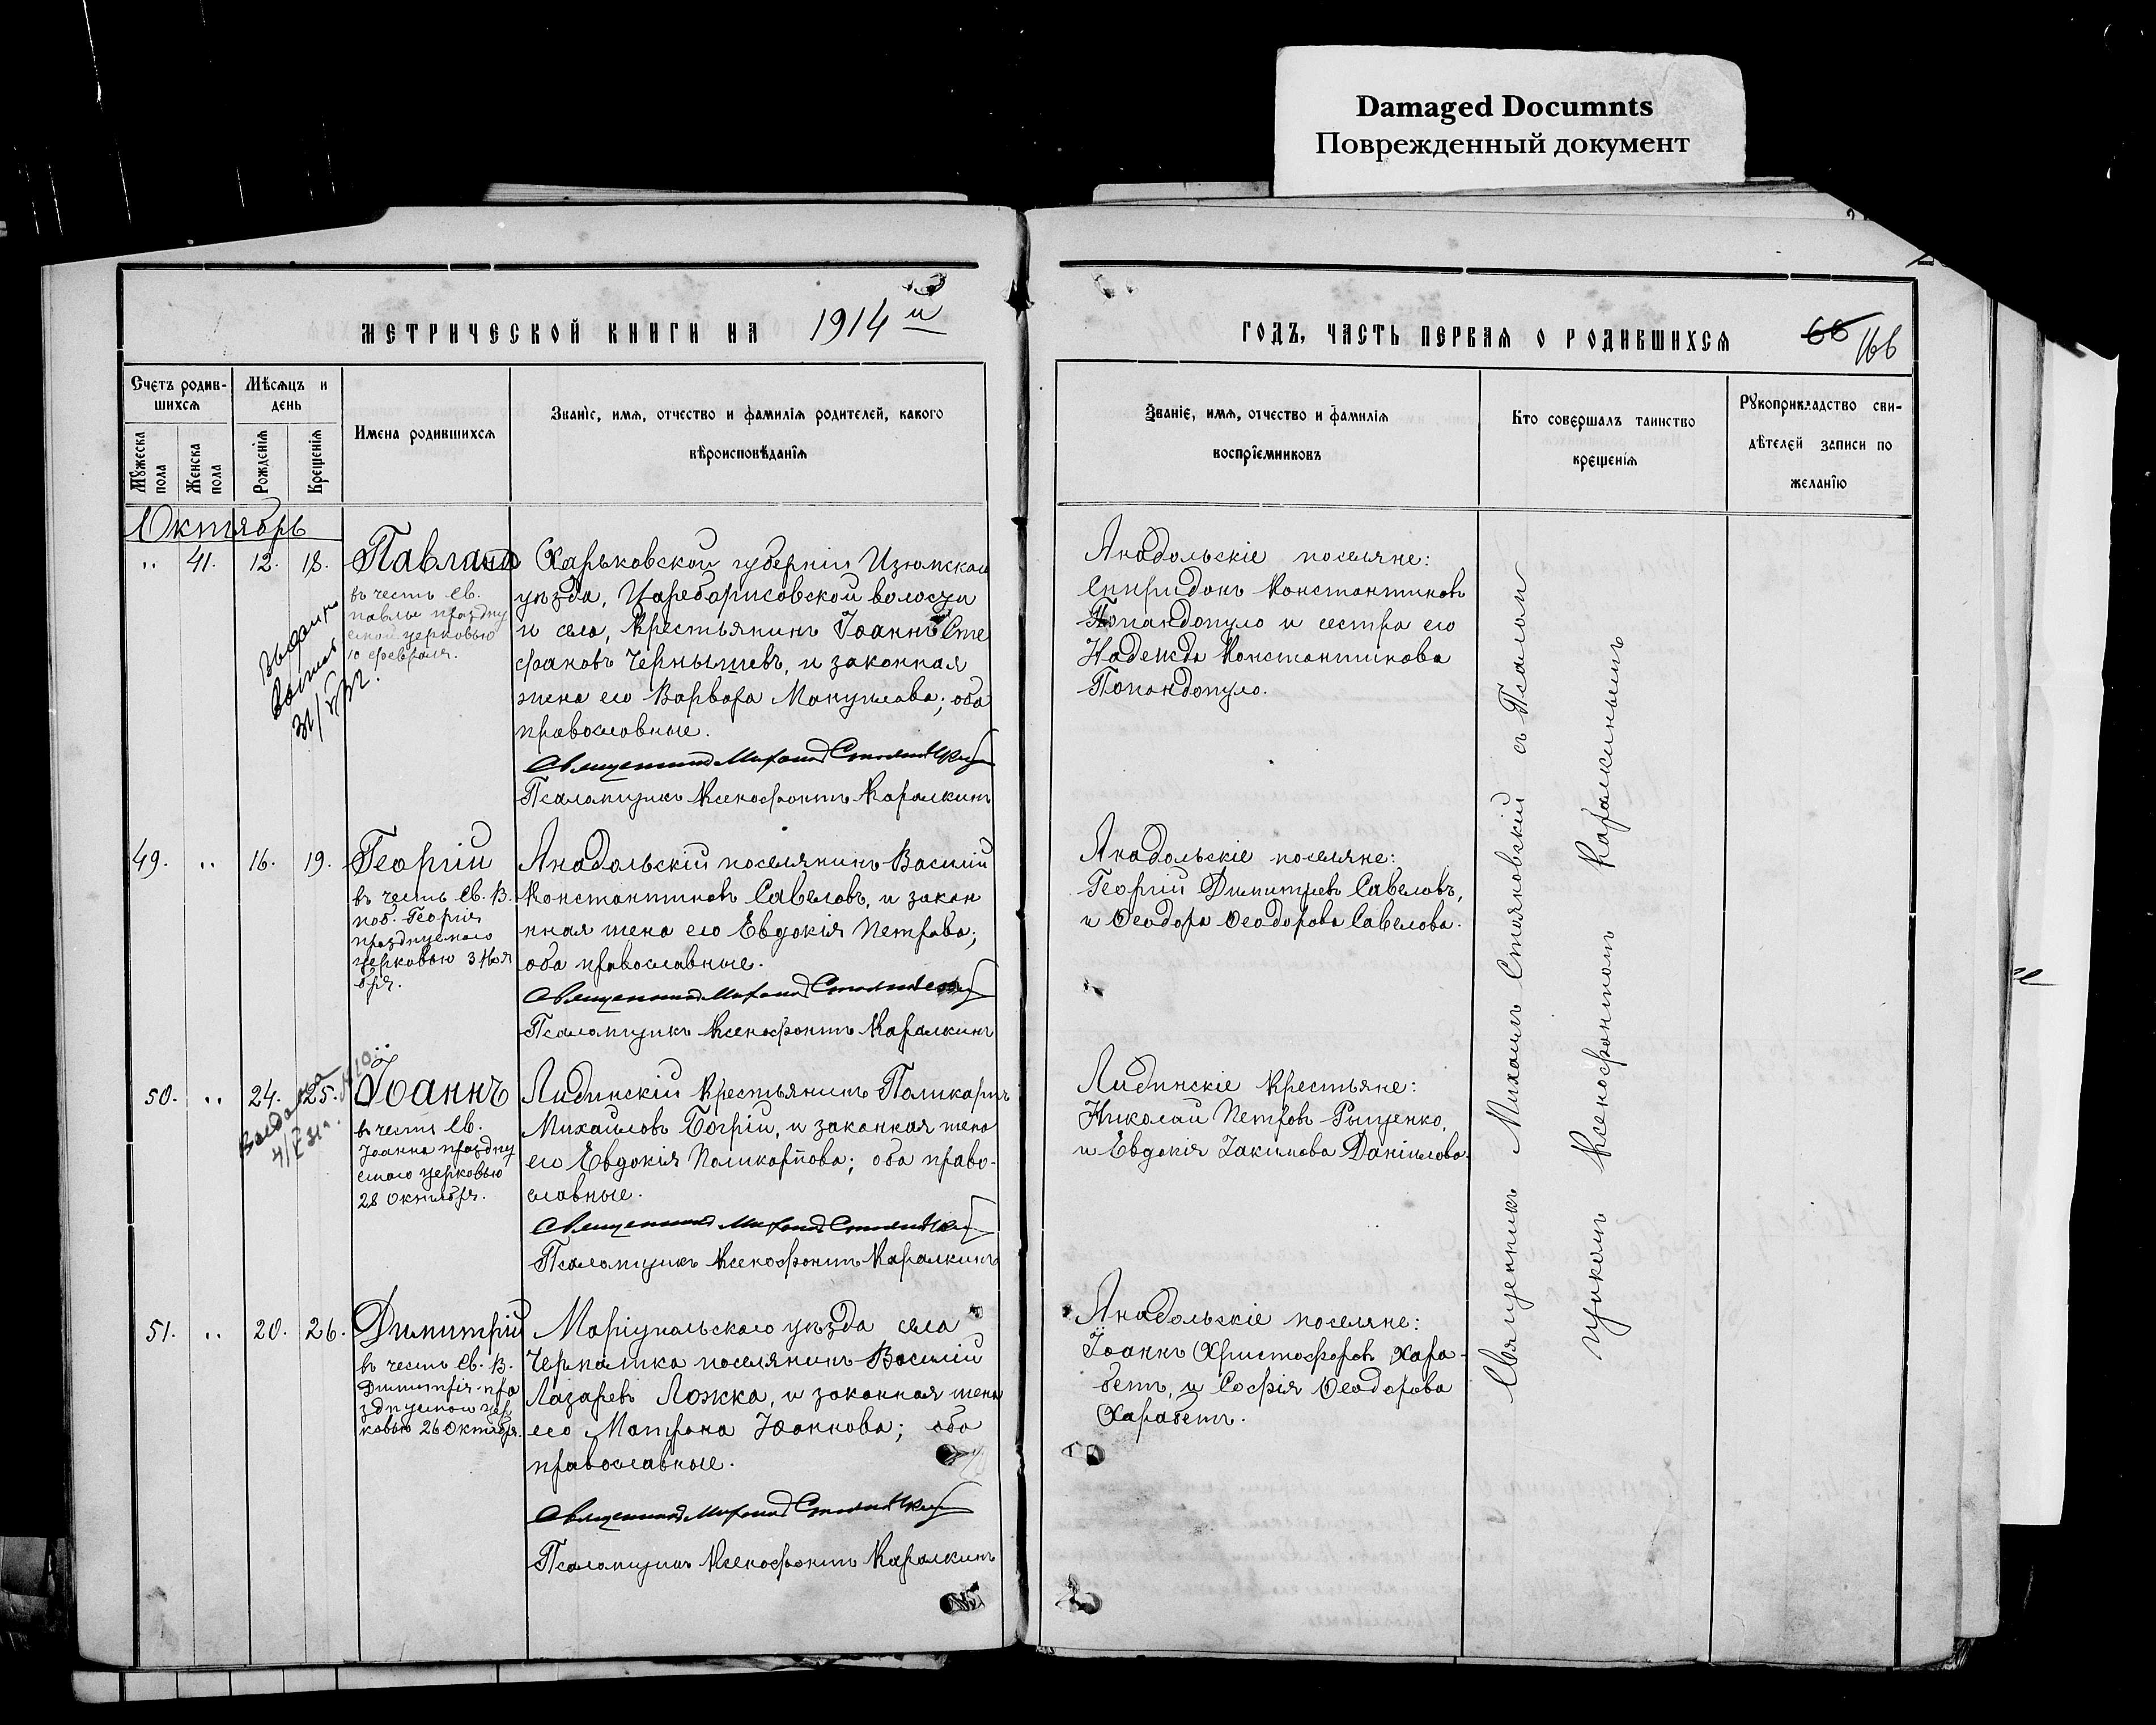 Damaged Documnts
Поврежденный документ
МЕТРИЧЕСКОЙ КНИГИ НА 1914 й
ГОДЪ, ЧАСТЬ ПЕРВАЯ О РОДИВШИХСЯ
66 166
Счетъ родив-
шихся
Мѣсяцъ и
день
Мужеска
пола
Женска
пола
Рожденія
Крещенія
Имена родившихся
Званіе, имя, отчество и фамилія родителей, какого
вѣроисповѣданія
Званіе, имя, отчество и фамилія
воспріемниковъ
Кто совершалъ таинство
крещенія
Рукоприкладство сви-
дѣтелей записи по
желанію
Октябрь
" 41. 12. 18.
Павла
въ честь Св.
Павлы праздну
емой церковью
10 февраля.
Харьковской губерніи Изюмскаго
уѣзда, Цареборисовской волости
и села, крестьянинъ Іоаннъ Сте
фановъ Чернышевъ, и законная
жена его Варвара Мануилова; оба
православные.
Священникъ Михаилъ Стояновскій
Псаломщикъ Ксенофонтъ Каралкинъ
Анадольскіе поселяне:
Спиридонъ Константиновъ
Попандопуло и сестра его
Надежда Константинова
Попандопуло.
49. " 16. 19.
Георгій
въ честь Св. В.
поб. Георгія
празднуемаго
церковью 3 Ноя
бря.
Анадольскій поселянинъ Василій
Константиновъ Савеловъ, и закон
нная жена его Евдокія Петрова;
оба православные.
Священникъ Михаилъ Стояновскій
Псаломщикъ Ксенофонтъ Каралкинъ
Анадольскіе поселяне:
Георгій Димитріевъ Савеловъ,
и Ѳеодора Ѳеодорова Савелова.
50. " 24. 25.
Іоаннъ
въ честь Св.
Іоанна праздну
емаго церковью
28 Октября.
Лидинскій крестьянинъ Поликарпъ
Михаиловъ Багрій, и законная жена
его Евдокія Поликарпова; оба право-
славные.
Священникъ Михаилъ Стояновскій
Псаломщикъ Ксенофонтъ Каралкинъ
Лидинскіе крестьяне:
Николай Петровъ Грищенко,
и Евдокія Іакимова Даніилова.
51. " 20. 26.
Димитрій
въ честь Св. В.
Димитрія пра
зднуемаго цер
ковью 26 Октября.
Маріупольскаго уѣзда села
Чермалыка поселянинъ Василій
Лазаревъ Ложка, и законная жена
его Матрона Іоаннова; оба
православные.
Священникъ Михаилъ Стояновскій
Псаломщикъ Ксенофонтъ Каралкинъ
Анадольскіе поселяне:
Іоаннъ Христофоровъ Хара-
бетъ, и Софія Ѳеодорова
Харабетъ.
Священникъ Михаилъ Стояновскій съ Псалом
щикомъ Ксенофонтомъ Каралкинымъ